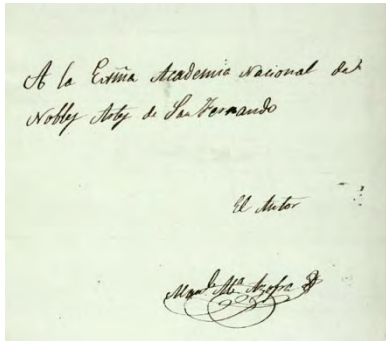 A la Exma Academia Nacional de
Nobles Artes de San Fernando
El Autor
Manl. Ma. Azofra